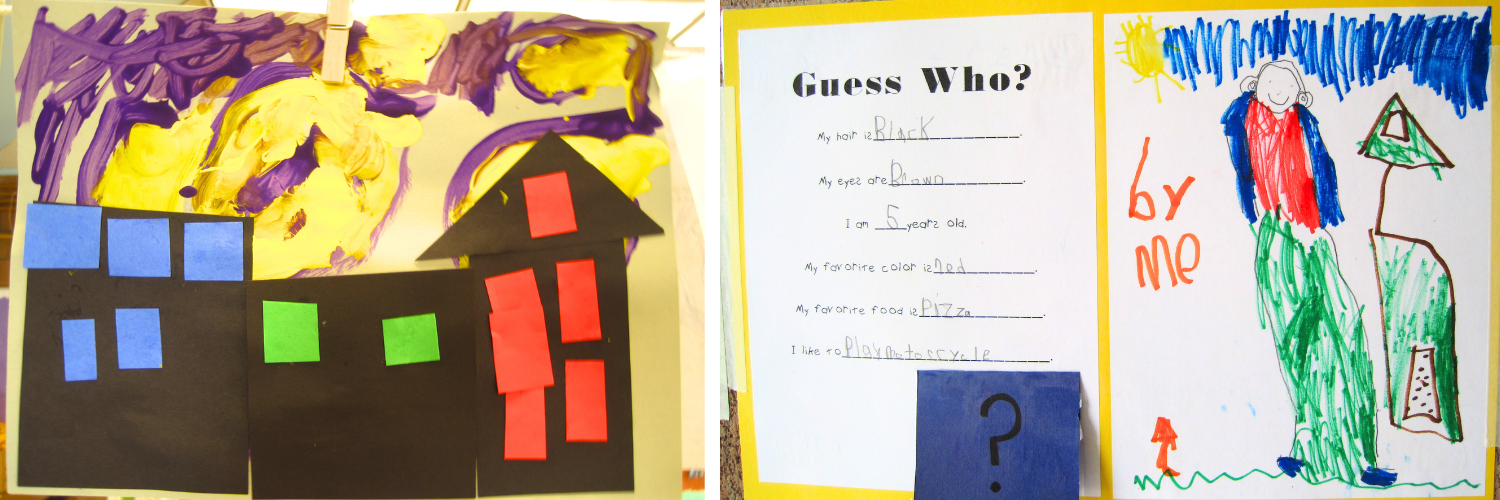 Guess Who?
My hair is Black.
My eyes are Brown.
I am 5 years old.
My favorite color is red.
My favorite food is Pizza.
I like to Play motorcycle.
?
by
me